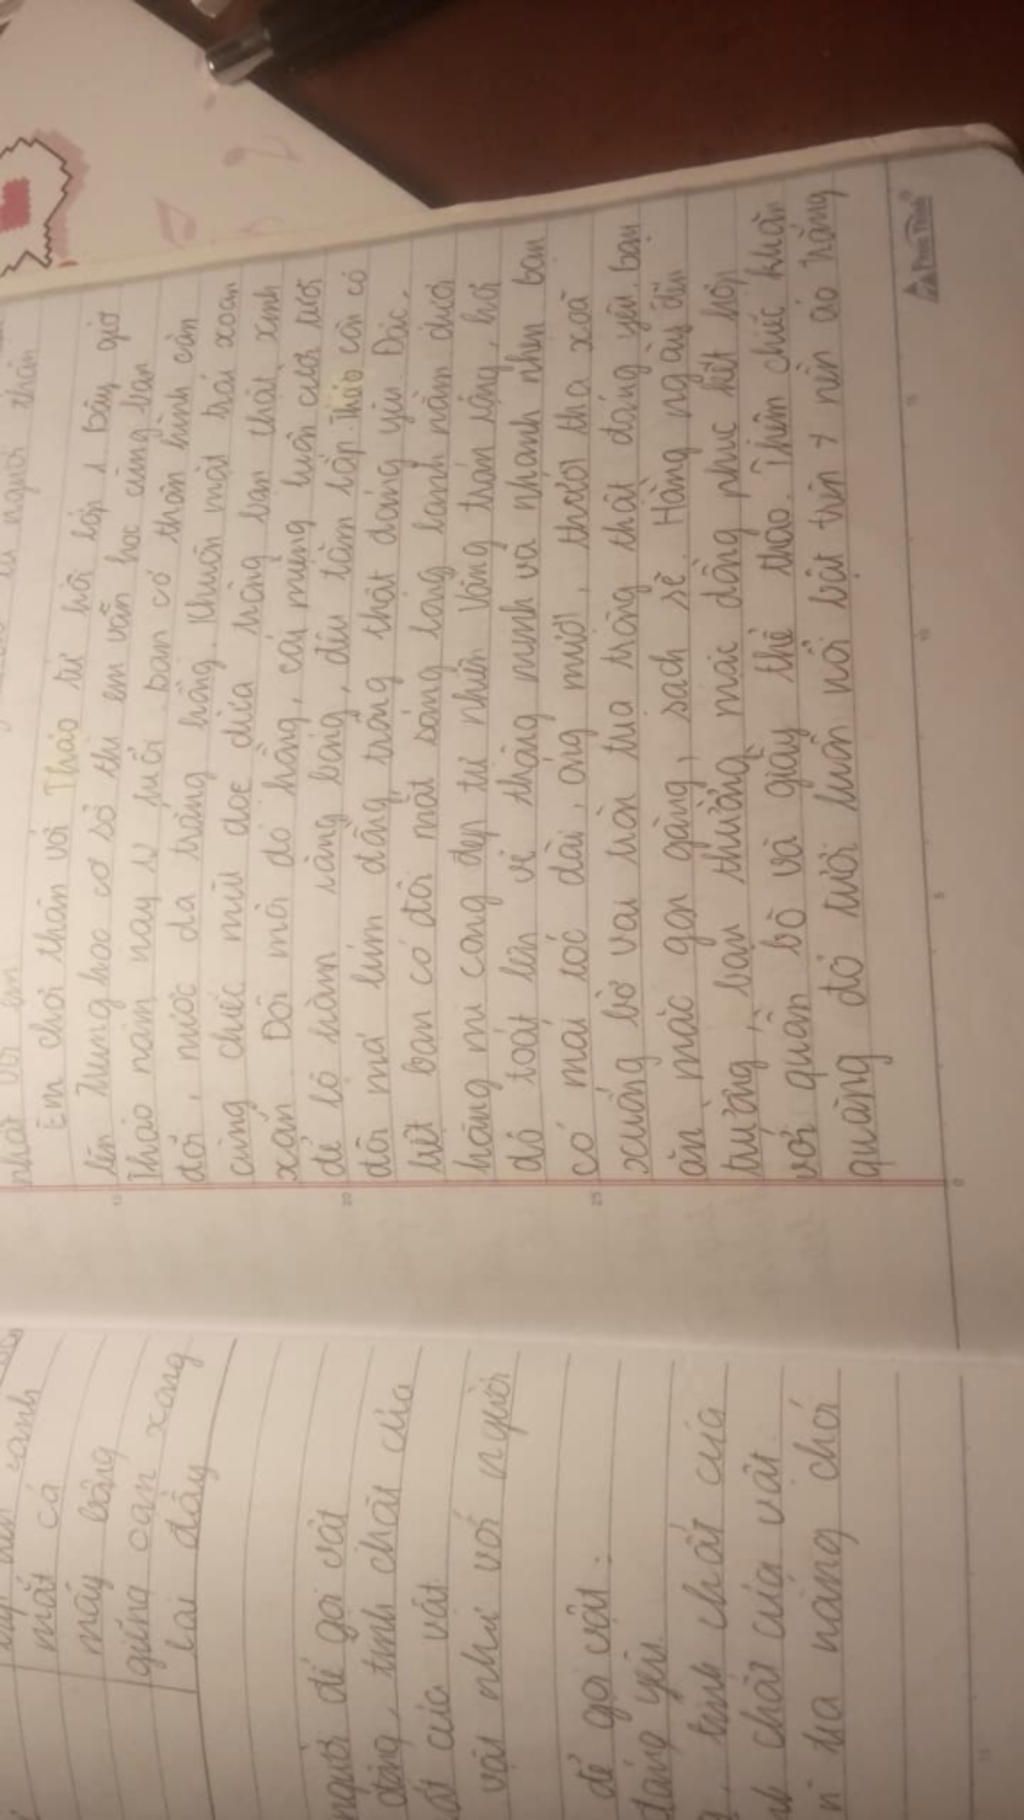 người thân
nhất với em
Em chơi thân với Thảo từ hồi lớp 1. Bây giờ
lên trung học cơ sở thì em vẫn học cùng bạn
Thảo năm nay 12 tuổi. bạn có thân hình cân
đối, nước da trắng hồng. Khuôn mặt trái xoan
cùng chiếc mũi dọc dừa trông bạn thật xinh
xắn. Đôi môi đỏ hồng, cái miệng luôn cười tươi
để lộ hàm răng bóng, đều tăm tắp. Thảo còn có
đôi má lúm đồng trông thật đáng yêu. Đặc
biệt bạn có đôi mắt sáng long lanh nằm dưới
hàng mi cong đẹp tự nhiên. Vầng trán rộng, hơi
dô toát lên vẻ thông minh và nhanh nhẹn bạn
có mái tóc dài, óng mượt, thướt tha xoã
xuống bờ vai tròn trịa trông thật đáng yêu. bạn
ăn mặc gọn gàng, sạch sẽ. Hằng ngày đến
trường, bạn thường mặc đồng phục kết hợp
với quần bò và giầy thể thao. Thêm chiếc khăn
quàng đỏ tươi luôn nổi bật trên nền áo trắng
Phúc Thịnh
xanh
mắt cá
mây bông
giếng cạn xong
lại đầy
người để gọi vật
động, tính chất của
ất của vật
vật như với người
để gọi vật:
đáng yêu
, tính chất của
h chất của vật.
n ta nàng chơi
15
20
25
0
5
10
15